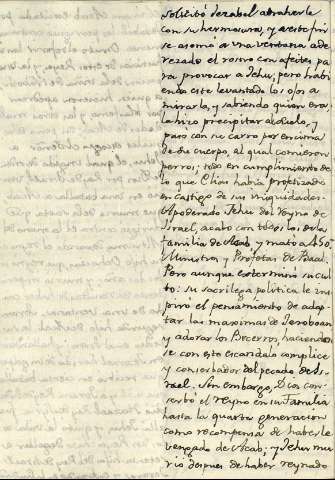 Solicitó Jezabel atraherle
con su hermosura, y a este fin
se asomó a una ventana ade
rezado el rostro con afeites pa
ra provocar a Jehu; pero habi
endo este levantado los ojos a
mirarla, y sabiendo quien era
la hizo precipitar al suelo, y
paso con su carro por encima
de su cuerpo, al qual comieron
perros; todo en cumplimiento de
lo que Elias habia profetizado
en castigo de sus iniquidades.
Apoderado Jehu del Reyno de
Israel, acabo con todos los de la
familia de Acab, y mato a
Ministros y Profetas de Baal.
Pero aunque exterminó su cul
to: su sacrilega politica le ins
piró el pensamiento de adop
tar las maximas de Jeroboan
y adorar los Becerros, haciendo
se con este escandalo complice
y conserbador del pecado de Is
rael. Sin embargo, Dios con
serbó el reyno en su Familia
hasta la quarta generacion
como recompensa de haberle
vengado de Acab; y Jehu mu
rió despues de haber reynado